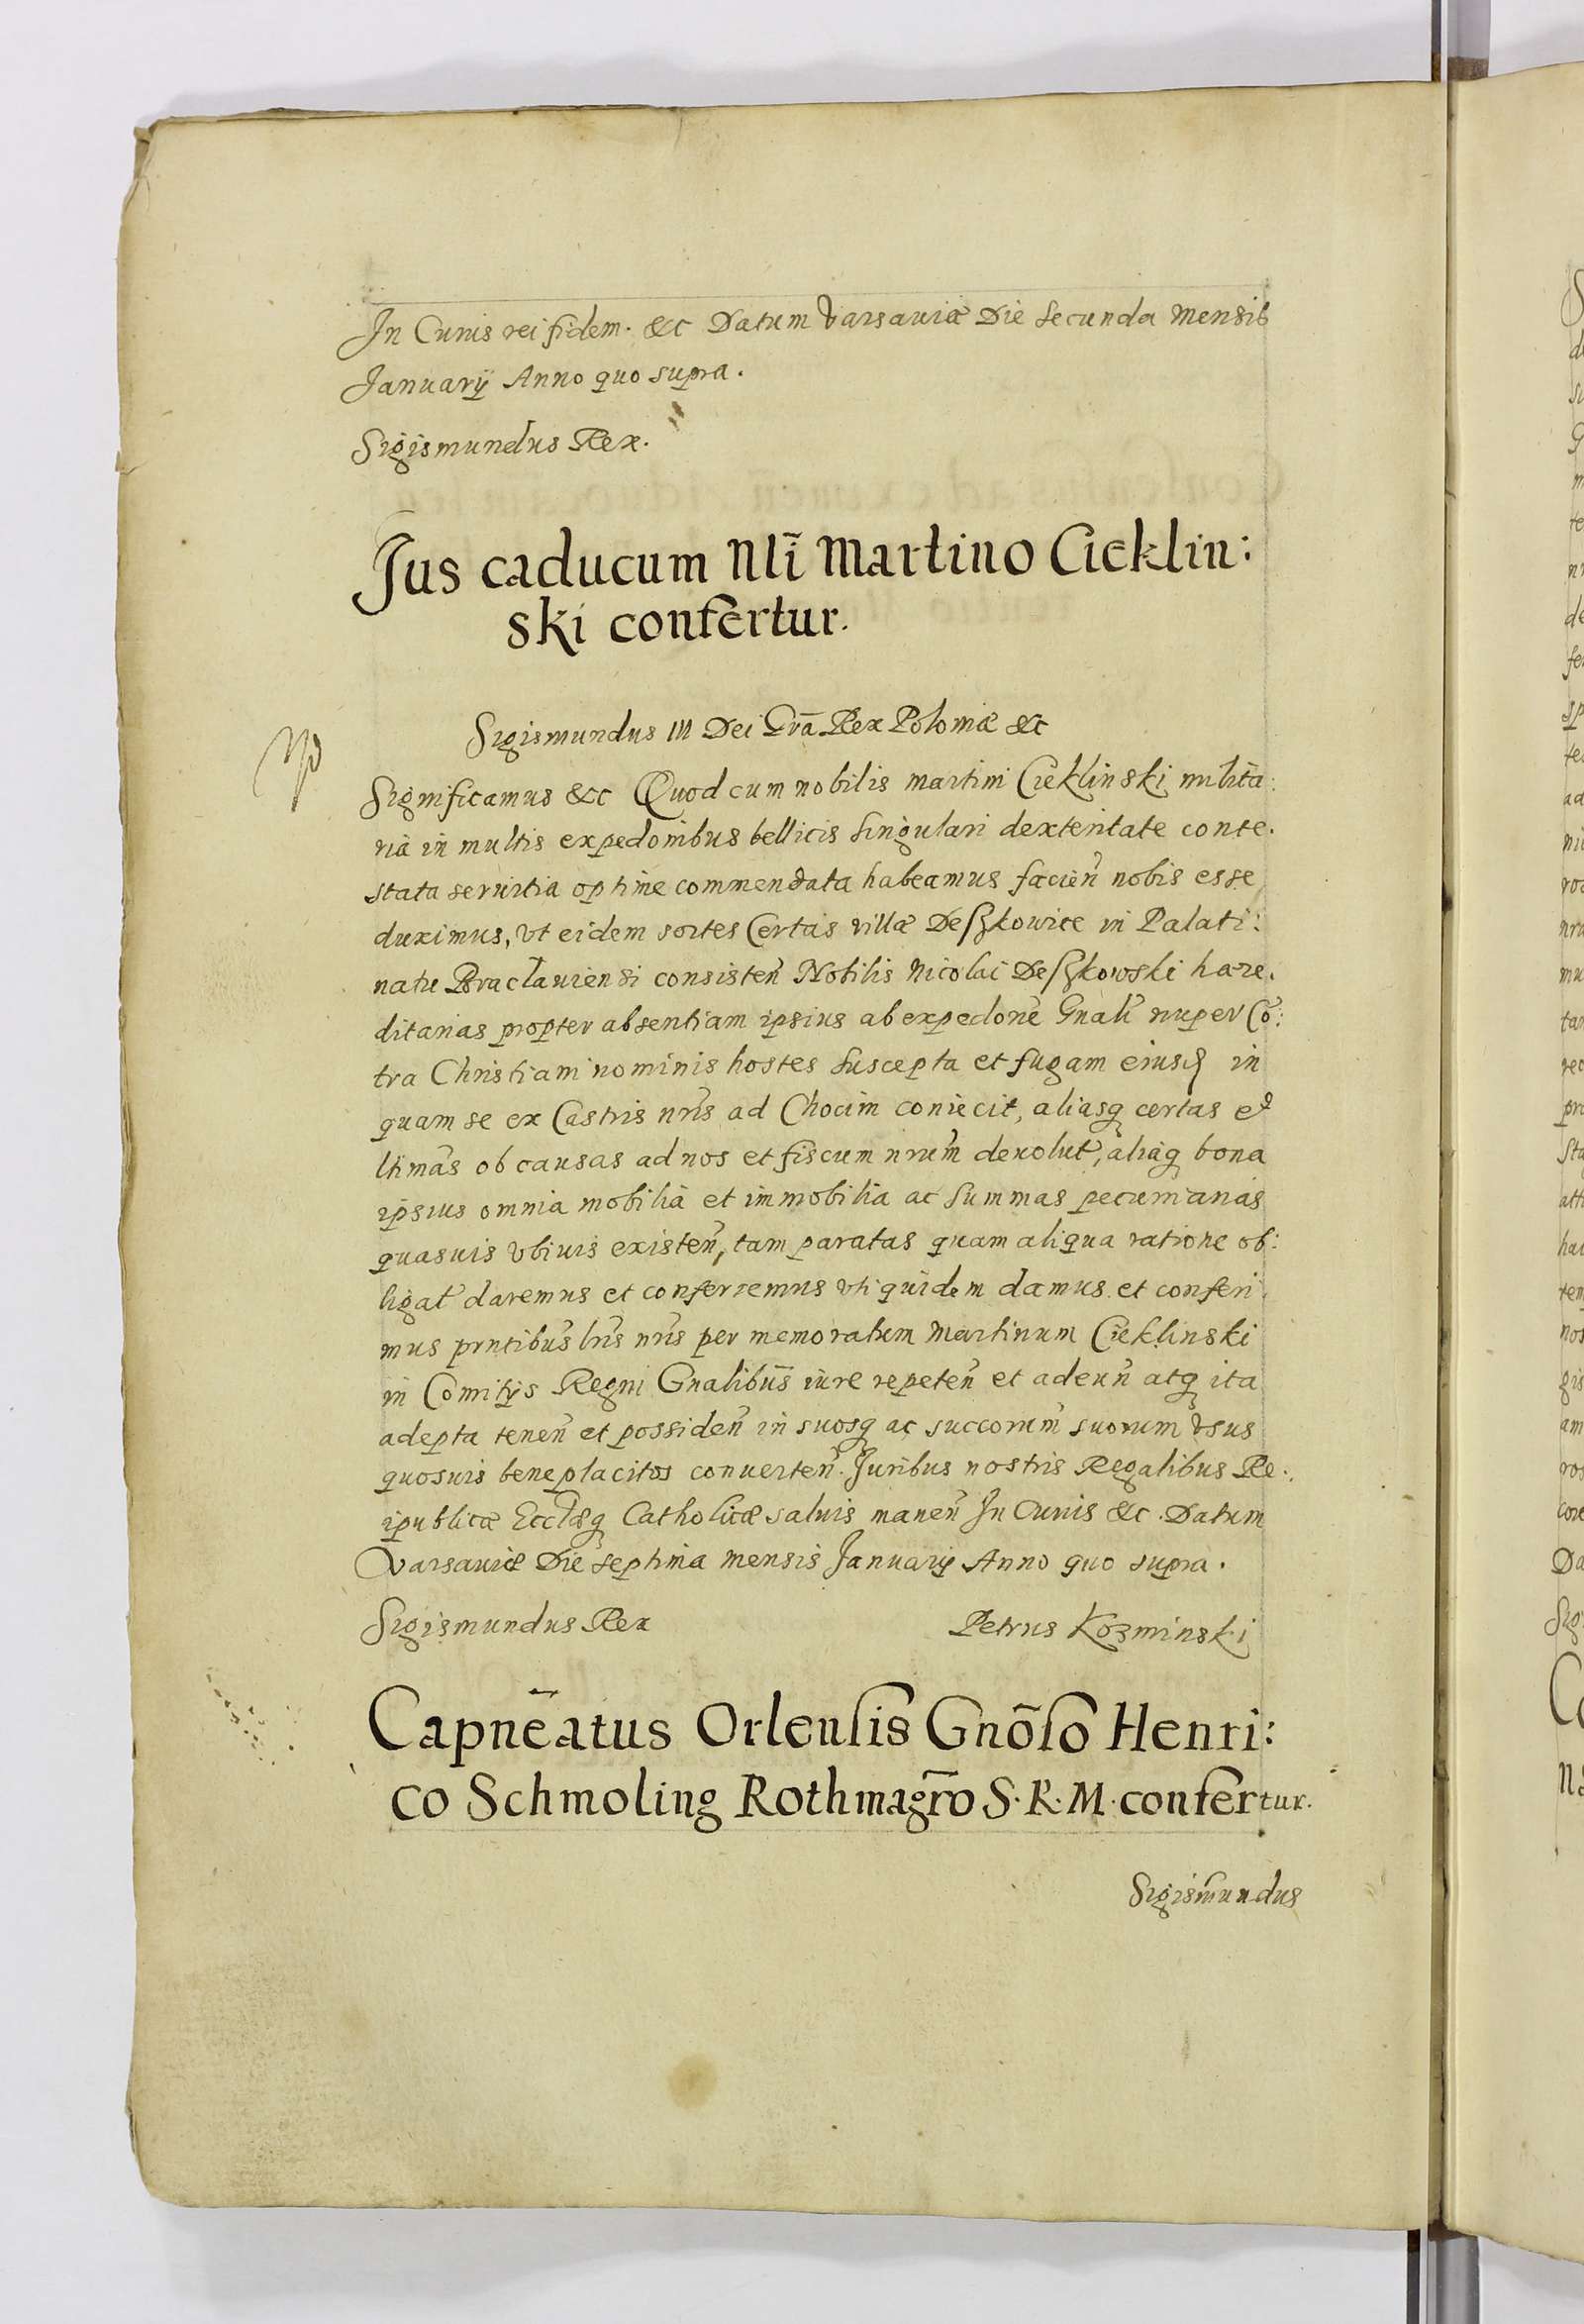 In Cuius rei fidem. &c Datum Varsaviæ Die Secunda Mensis
Januarij Anno quo supra.
Sigismundus Rex.
Jus caducum Nlĩ Martino Cieklin:
ski confertur.
Sigismundus III Dei Grã Rex Poloniæ &c
Significamus &c Quod cum nobilis Martini Cieklinski milita:
ria in multis expedonibus bellicis singulari dexteritate conte.
stata servitia optime commendata habeamus facieñ nobis esse
duximus, vt eidem sortes Certas villæ Deszkowice in Palati:
natu Braclauiensi consisteñ Nobilis Nicolai Deszkowski hære.
ditarias propter absentiam ipsius ab expedone Gnali nuper Cõ:
tra Christiani nominis hostes suscepta et fugam eiusd in
quam se ex Castris nris ad Chocim coniecit, aliasq certas et
ltimas ob causas ad nos et fiscum nrum deuolut, aliaq bona
ipsius omnia mobilia et immobilia ac summas pecuniarias
quasuis vbiuis existeñ, tam paratas quam aliqua ratione ob:
ligat daremus et conferremus vti quidem damus et conferi.
mus prntibus lris nris per memoratum Martinum Cieklinski
in Comitijs Regni Gnalibus iure repeteñ et adeuñ atq ita
adepta teneñ et possideñ in suosq ac succorum suorum vsus
quosuis beneplacitos conuerteñ. Juribus nostris Regalibus Re.
ipublicæ Ecclæq Catholicæ saluis maneñ In Cuius &c. Datum
Varsaviæ Die septima mensis Januarij Anno quo supra.
Sigismundus Rex Petrus Kozminski
Capnẽatus Orlensis Gnõso Henri:
co Schmoling Rothmagr̃o S. R. M. confertur.
Sigismundus